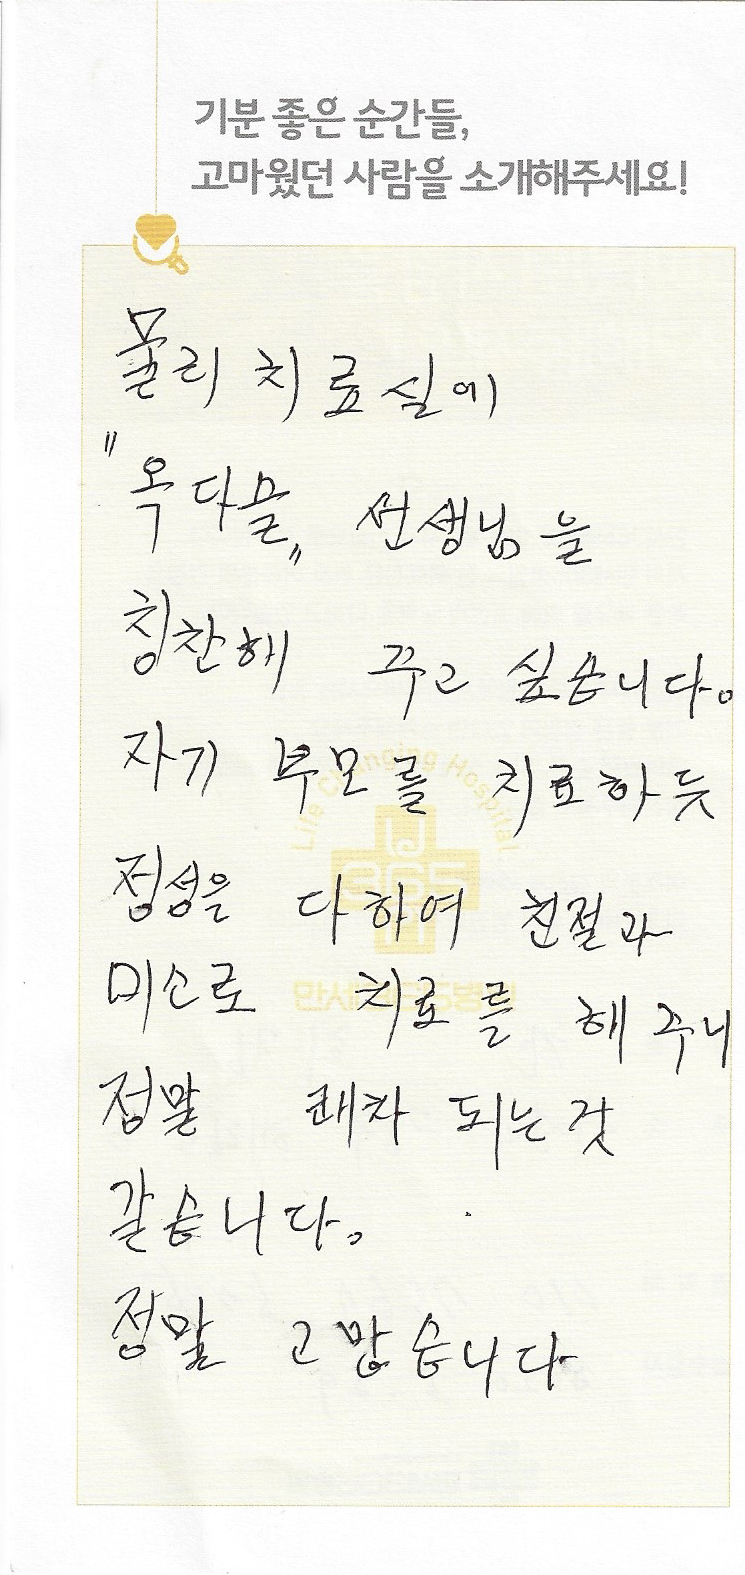 기분 좋은 순간들,
고마웠던 사람을 소개해주세요!
물리 치료실에
"옥다물" 선생님을
칭찬해 꾸고 싶습니다.
자기 부모를 치료하듯
정성을 다하여 친절과
미소로 치료를 해 주니
정말 쾌차 되는것
같습니다.
정말 고맙습니다
Life Changing Hospital
365